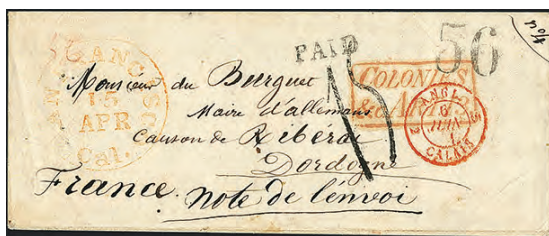 PAID
56
SAN FRANCISCO
15
APR
Cal.
COLONIES
& ART.13
ANGL.
6
JUIN
CALAIS
15
Monsieur du Burguet
Maire d'allemans
Canson de Riberac
Dordogne
France. Note de l'envoi